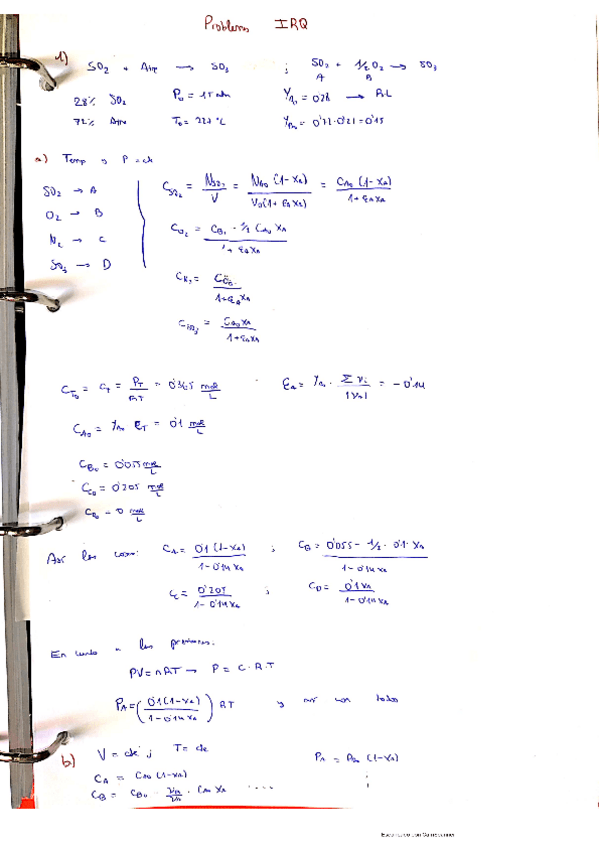 Problemas IRQ
1) SO2 + Aire → SO3 ; SO2 + 1/2 O2 → SO3
A B
28% SO2 P0 = 15 atm YA0 = 0'28 → R.L
72% Aire T0 = 227 °C YB0 = 0'72·0'21 = 0'15
a) Temp y P = cte
SO2 → A
O2 → B
N2 → C
SO3 → D
CSO2 = NSO2 / V = NA0 (1-XA) / V0(1+εAXA) = CA0 (1-XA) / 1+εAXA
CO2 = CB0 - 1/2 CA0 XA / 1+εAXA
CN2 = CC0 / 1+εAXA
CSO3 = CA0 XA / 1+εAXA
CT0 = CT = PT / RT = 0'365 mol/L εA = YA0 · Σνi / |νA| = -0'14
CA0 = YA0 CT = 0'1 mol/L
CB0 = 0'055 mol/L
CC0 = 0'205 mol/L
CD0 = 0 mol/L
Así las conc: CA = 0'1 (1-XA) / 1-0'14XA ; CB = 0'055 - 1/2 · 0'1 · XA / 1-0'14XA
CC = 0'205 / 1-0'14XA ; CD = 0'1XA / 1-0'14XA
En cuanto a las presiones:
PV = nRT → P = C·R·T
PA = ( 0'1(1-XA) / 1-0'14XA ) RT y así con todos
b) V = cte ; T = cte PA = PA0 (1-XA)
CA = CA0 (1-XA)
CB = CB0 · νB/νA · CA0 XA ....
Escaneado con CamScanner